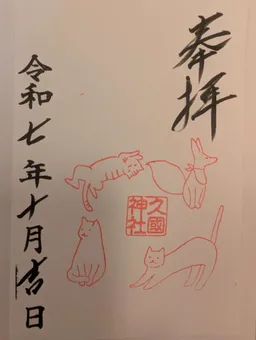 奉拝
久國
神社
令和七年十月吉日